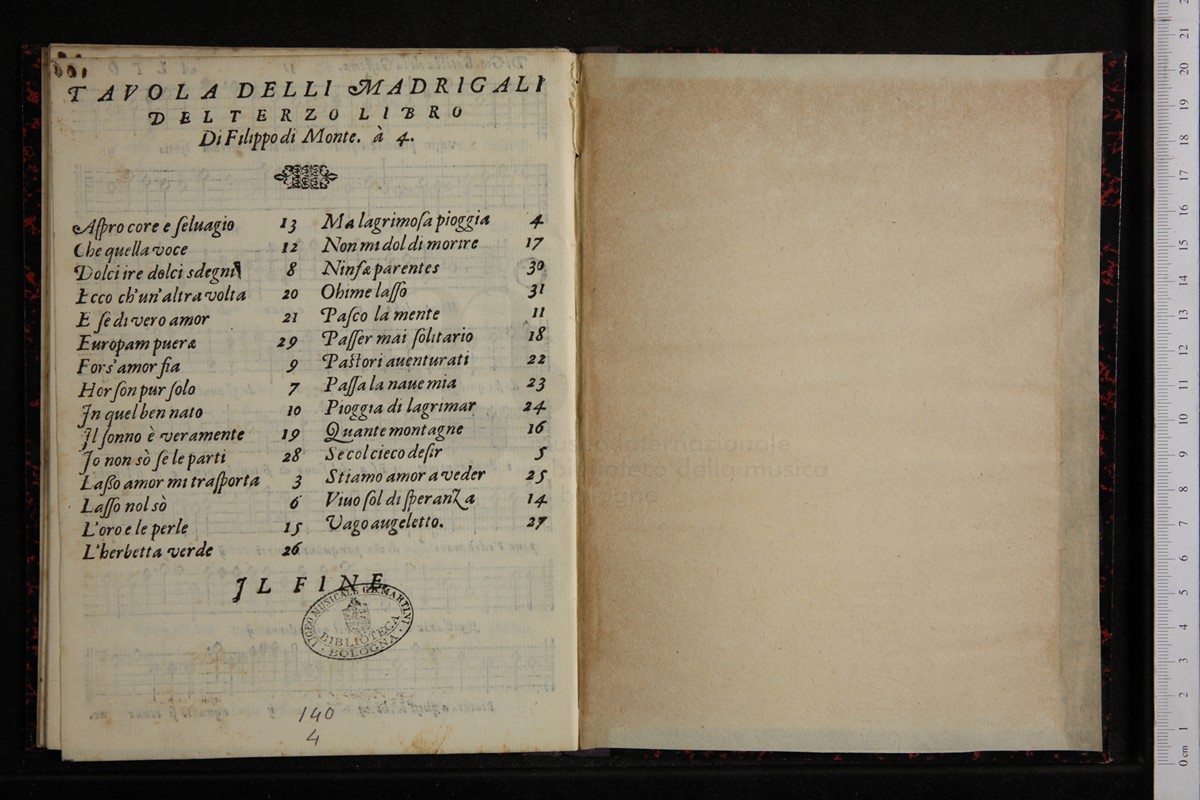 TAVOLA DELLI MADRIGALI
DEL TERZO LIBRO
Di Filippo di Monte. à 4.
Aſpro core e ſeluagio 13
Che quella voce 12
Dolci ire dolci sdegni 8
Ecco ch'un'altra volta 20
E ſe di vero amor 21
Europam puerę 29
Fors'amor ſia 9
Hor ſon pur ſolo 7
In quel ben nato 10
Il ſonno è veramente 19
Io non sò ſe le parti 28
Laßo amor mi traſporta 3
Laſſo nol sò 6
L'oro e le perle 15
L'herbetta verde 26
Ma lagrimoſa pioggia 4
Non mi dol di morire 17
Ninfę parentes 30
Ohime laſſo 31
Paſco la mente 11
Paſſer mai ſolitario 18
Paſtori auenturati 22
Paſſa la naue mia 23
Pioggia di lagrimar 24
Quante montagne 16
Se col cieco deſir 5
Stiamo amor a veder 25
Viuo ſol di ſperanza 14
Vago augeletto. 27
IL FINE
LICEO MUSICALE G.B. MARTINI
BIBLIOTECA
BOLOGNA
140
4
museo internazionale
biblioteca della musica
bologna
0 cm 1 2 3 4 5 6 7 8 9 10 11 12 13 14 15 16 17 18 19 20 21